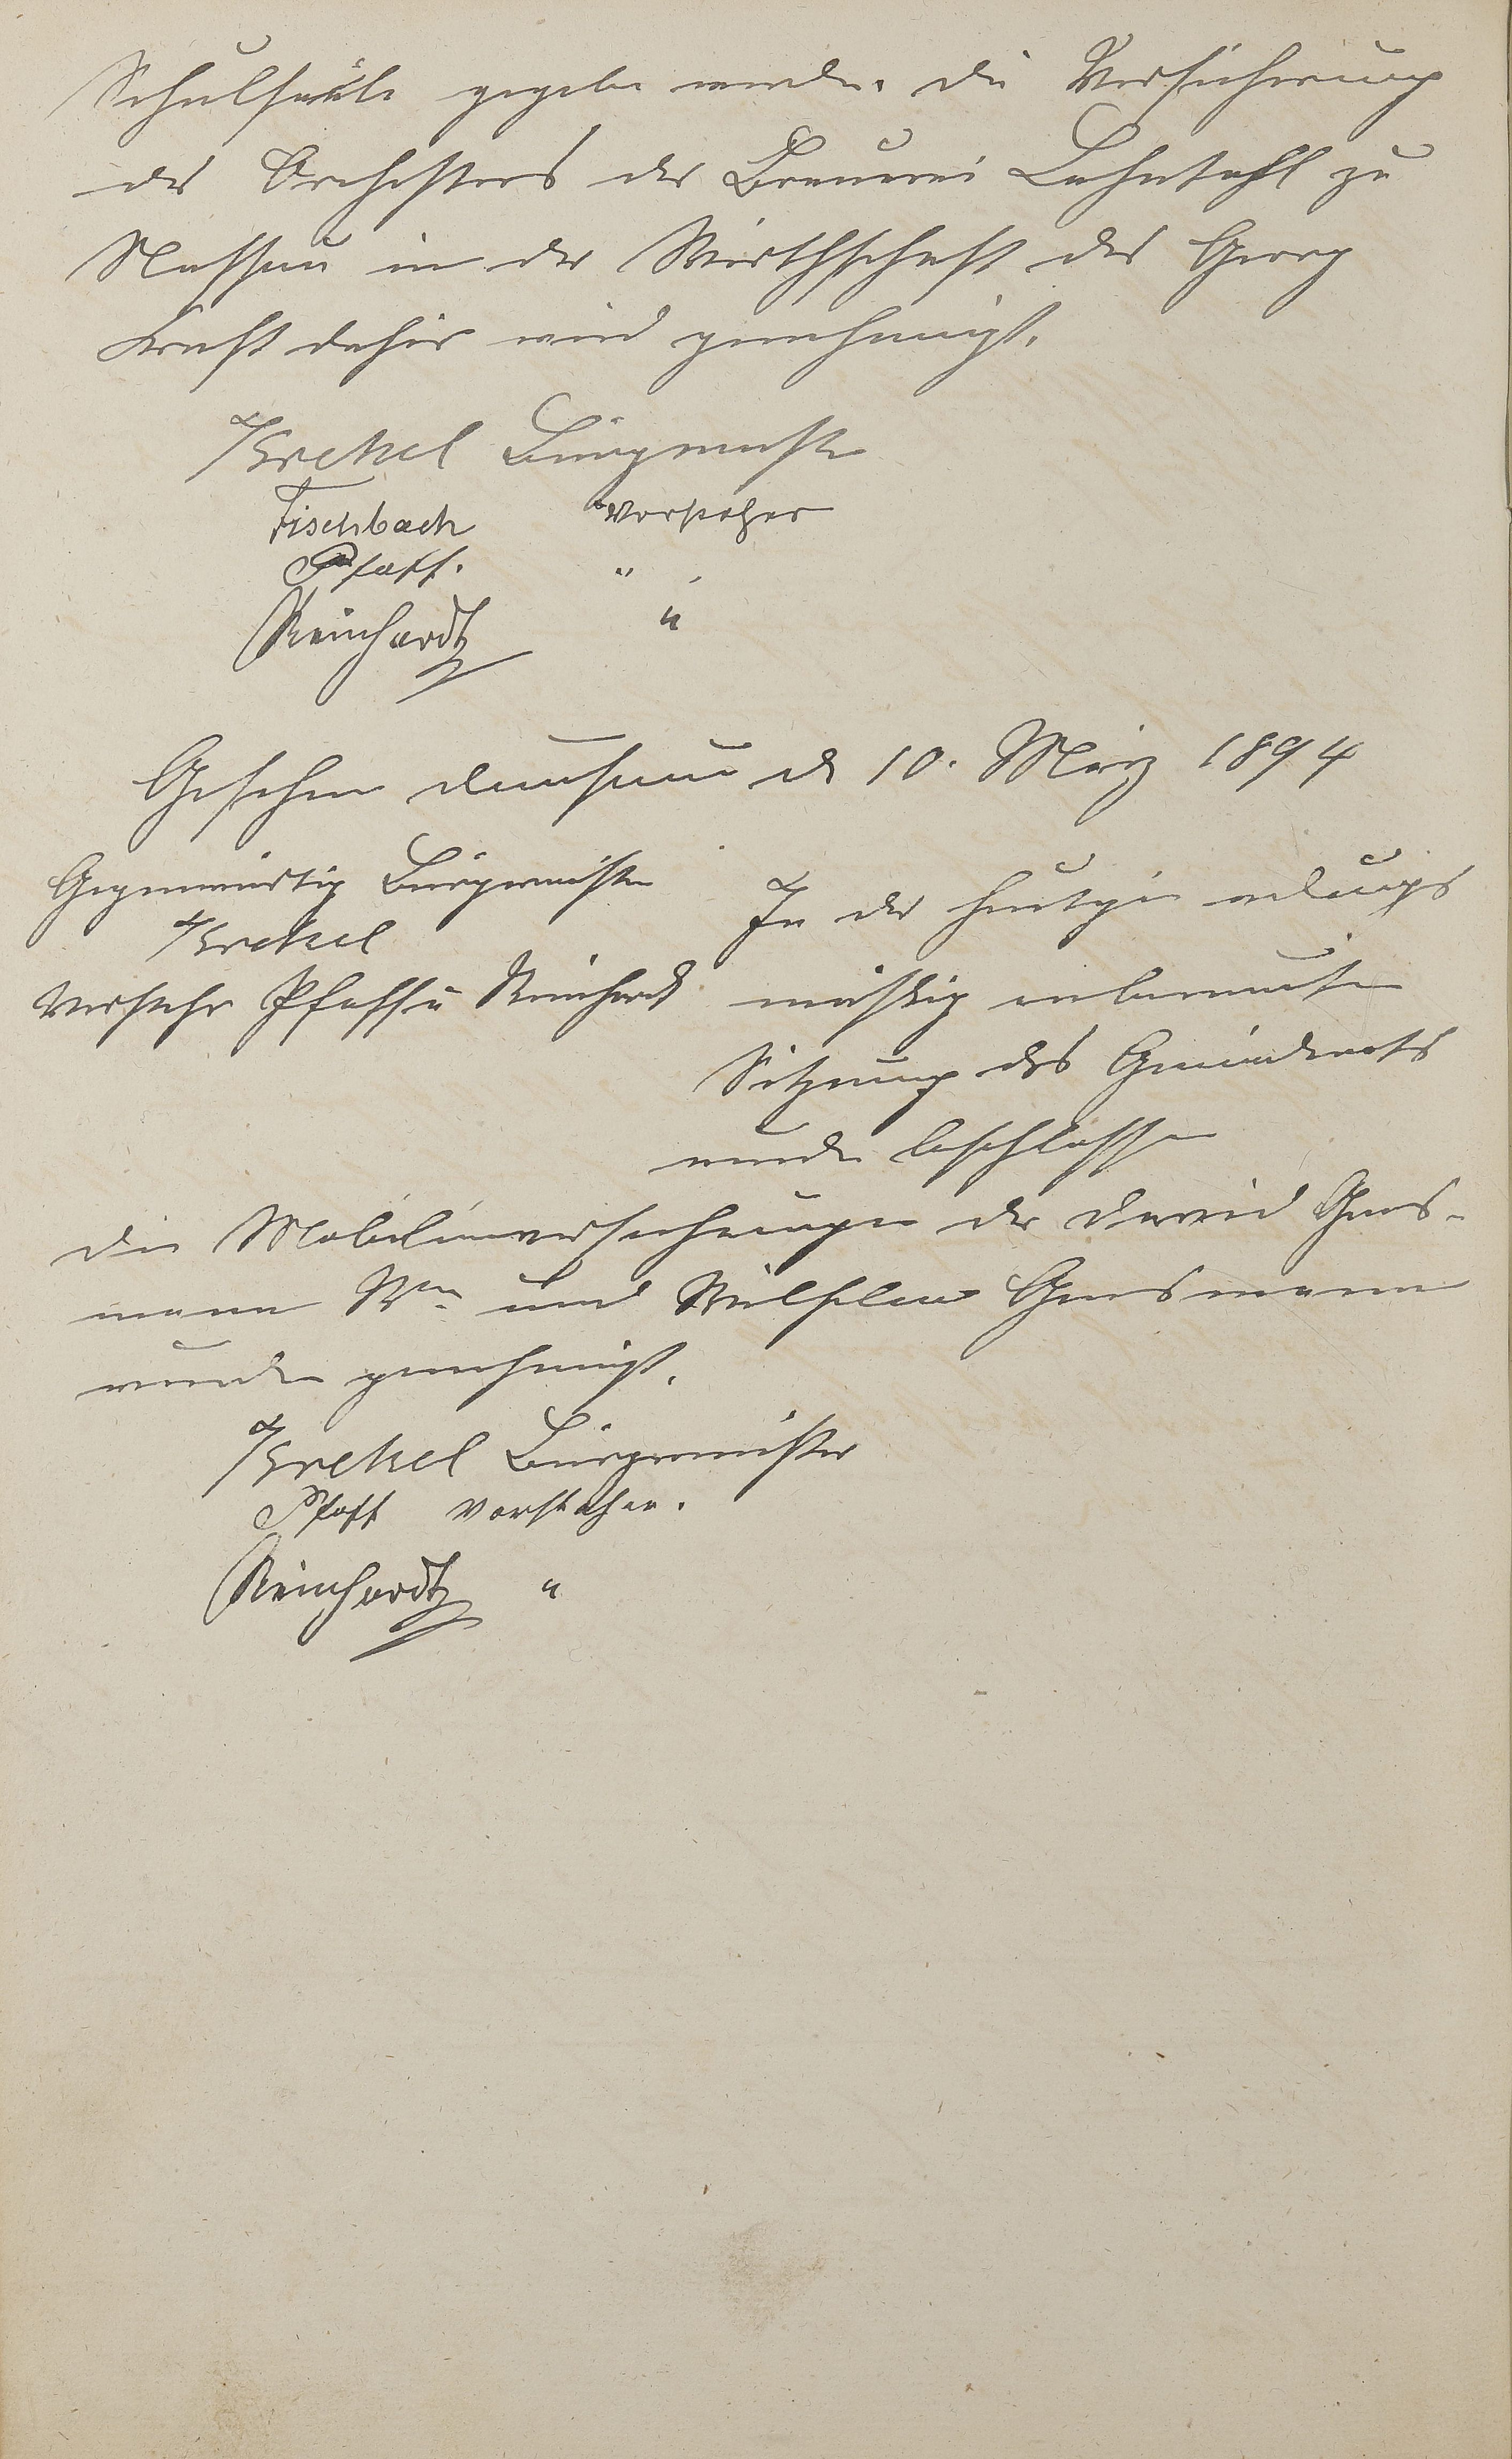 Schulsäle gegeben werden. Die Versicherung
des Orchesters der Brauerei Lahntahl zu
Nassau in der Wirthschaft des Georg
Kraft dahier wird genehmigt.
Krekel Bürgermeister
Fischbach Vorsteher
Pfaff. "
Reinhardt "
Geschehen Dausenau d 10. März 1894
Gegenwärtig Bürgermeister
Krekel
Vorsteher Pfaff u Reinhardt
In der heutigen ordnungs
mäßig anberaumten
Sitzung des Gemeinderats
wurde beschlossen
Die Mobilienversicherungen der David Gens-
mann Wwe und Wilhelm Gensmann
wurden genehmigt.
Krekel Bürgermeister
Pfaff Vorsteher.
Reinhardt "